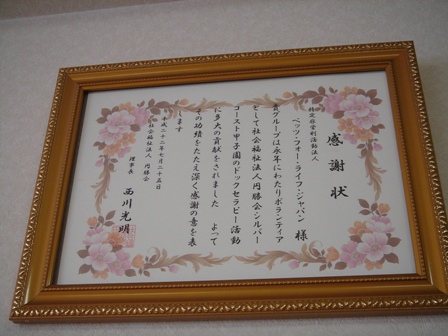 感謝状
特定非営利活動法人
ペッツ・フォー・ライフ・ジャパン 様
貴グループは永年にわたりボランティア
として社会福祉法人円勝会シルバー
コースト甲子園のドックセラピー活動
に多大の貢献をされました よって
その功績をたたえ深く感謝の意を表
します
平成二十二年七月二十五日
社会福祉法人 円勝会
理事長 西川光明